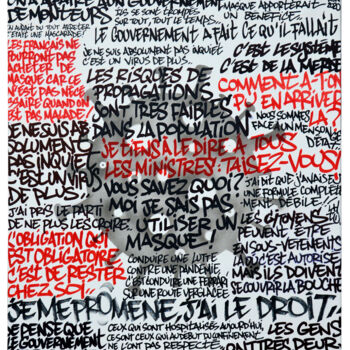 AVONS
AU GOUVERNEMENT
AMATEURS
SUR TOUT, TOUT LE TEMPS..
MASQUE APPORTERAIT
UN BÉNÉFICE..
C'ÉTAIT UNE MASCARADE!
LE GOUVERNEMENT A FAIT CE QU'IL FALLAIT
LES FRANÇAIS NE
POURRONT PAS
ACHETER DE
MASQUE CAR CE
N'EST PAS NÉCES-
SAIRE QUAND ON
EST PAS MALADE!
JE NE SUIS ABSOLUMENT PAS INQUIET
C'EST UN VIRUS DE PLUS...
C'EST LE SYSTÈME
C'EST DE LA MERDE
LES RISQUES DE
PROPAGATIONS
SONT TRÈS FAIBLES
DANS LA POPULATION
COMMENT A-T-ON
PU EN ARRIVER
LÀ?
NOUS SOMMES
FACE À UN MENSONGE
D'ÉTAT.
JE NE SUIS AB
SOLUMENT
PAS INQUIET
C'EST UN VIRUS
DE PLUS...
JE TIENS À LE DIRE À TOUS
LES MINISTRES: TAISEZ-VOUS!
VOUS SAVEZ QUOI?
MOI JE SAIS PAS
UTILISER UN
MASQUE
J'AI DIT QUE J'ANALYSE
UNE FORMULE COMPLÈTE
-MENT DÉBILE!
J'AI PRIS LE PARTI
DE NE PLUS LES CROIRE.
LES CITOYENS
PEUVENT ÊTRE
EN SOUS-VÊTEMENTS
LÀ OÙ C'EST AUTORISÉ
MAIS ILS DOIVENT
SE COUVRIR LA BOUCHE
L'OBLIGATION QUI
EST OBLIGATOIRE
C'EST DE RESTER
CHEZ SOI..
CONDUIRE UNE LUTTE
CONTRE UNE PANDÉMIE,
C'EST CONDUIRE UNE FERRARI
SUR UNE ROUTE VERGLACÉE
JE ME PROMÈNE, J'AI LE DROIT..
JE PENSE QUE
LE GOUVERNEMENT
CEUX QUI SONT HOSPITALISÉS AUJOURD'HUI,
CE SONT CEUX QUI AU DÉBUT DU CONFINEMENT
NE L'ONT PAS RESPECTÉ.
LES GENS
ONT TRÈS PEUR